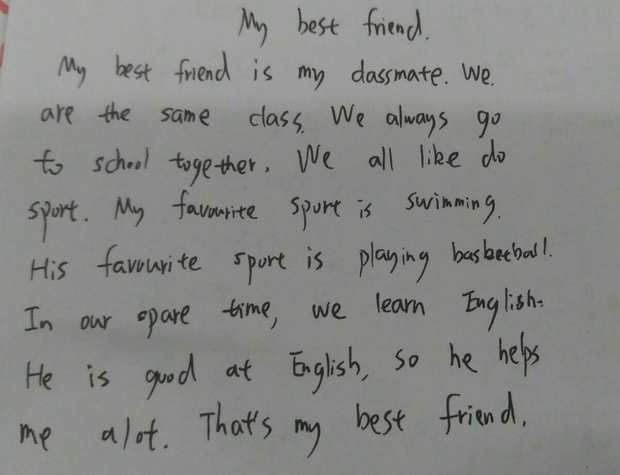 My best friend.
My best friend is my classmate. We
are the same class. We always go
to school together. We all like do
sport. My favourite sport is swimming.
His favourite sport is playing basketball.
In our spare time, we learn English.
He is good at English, so he helps
me alot. That's my best friend.